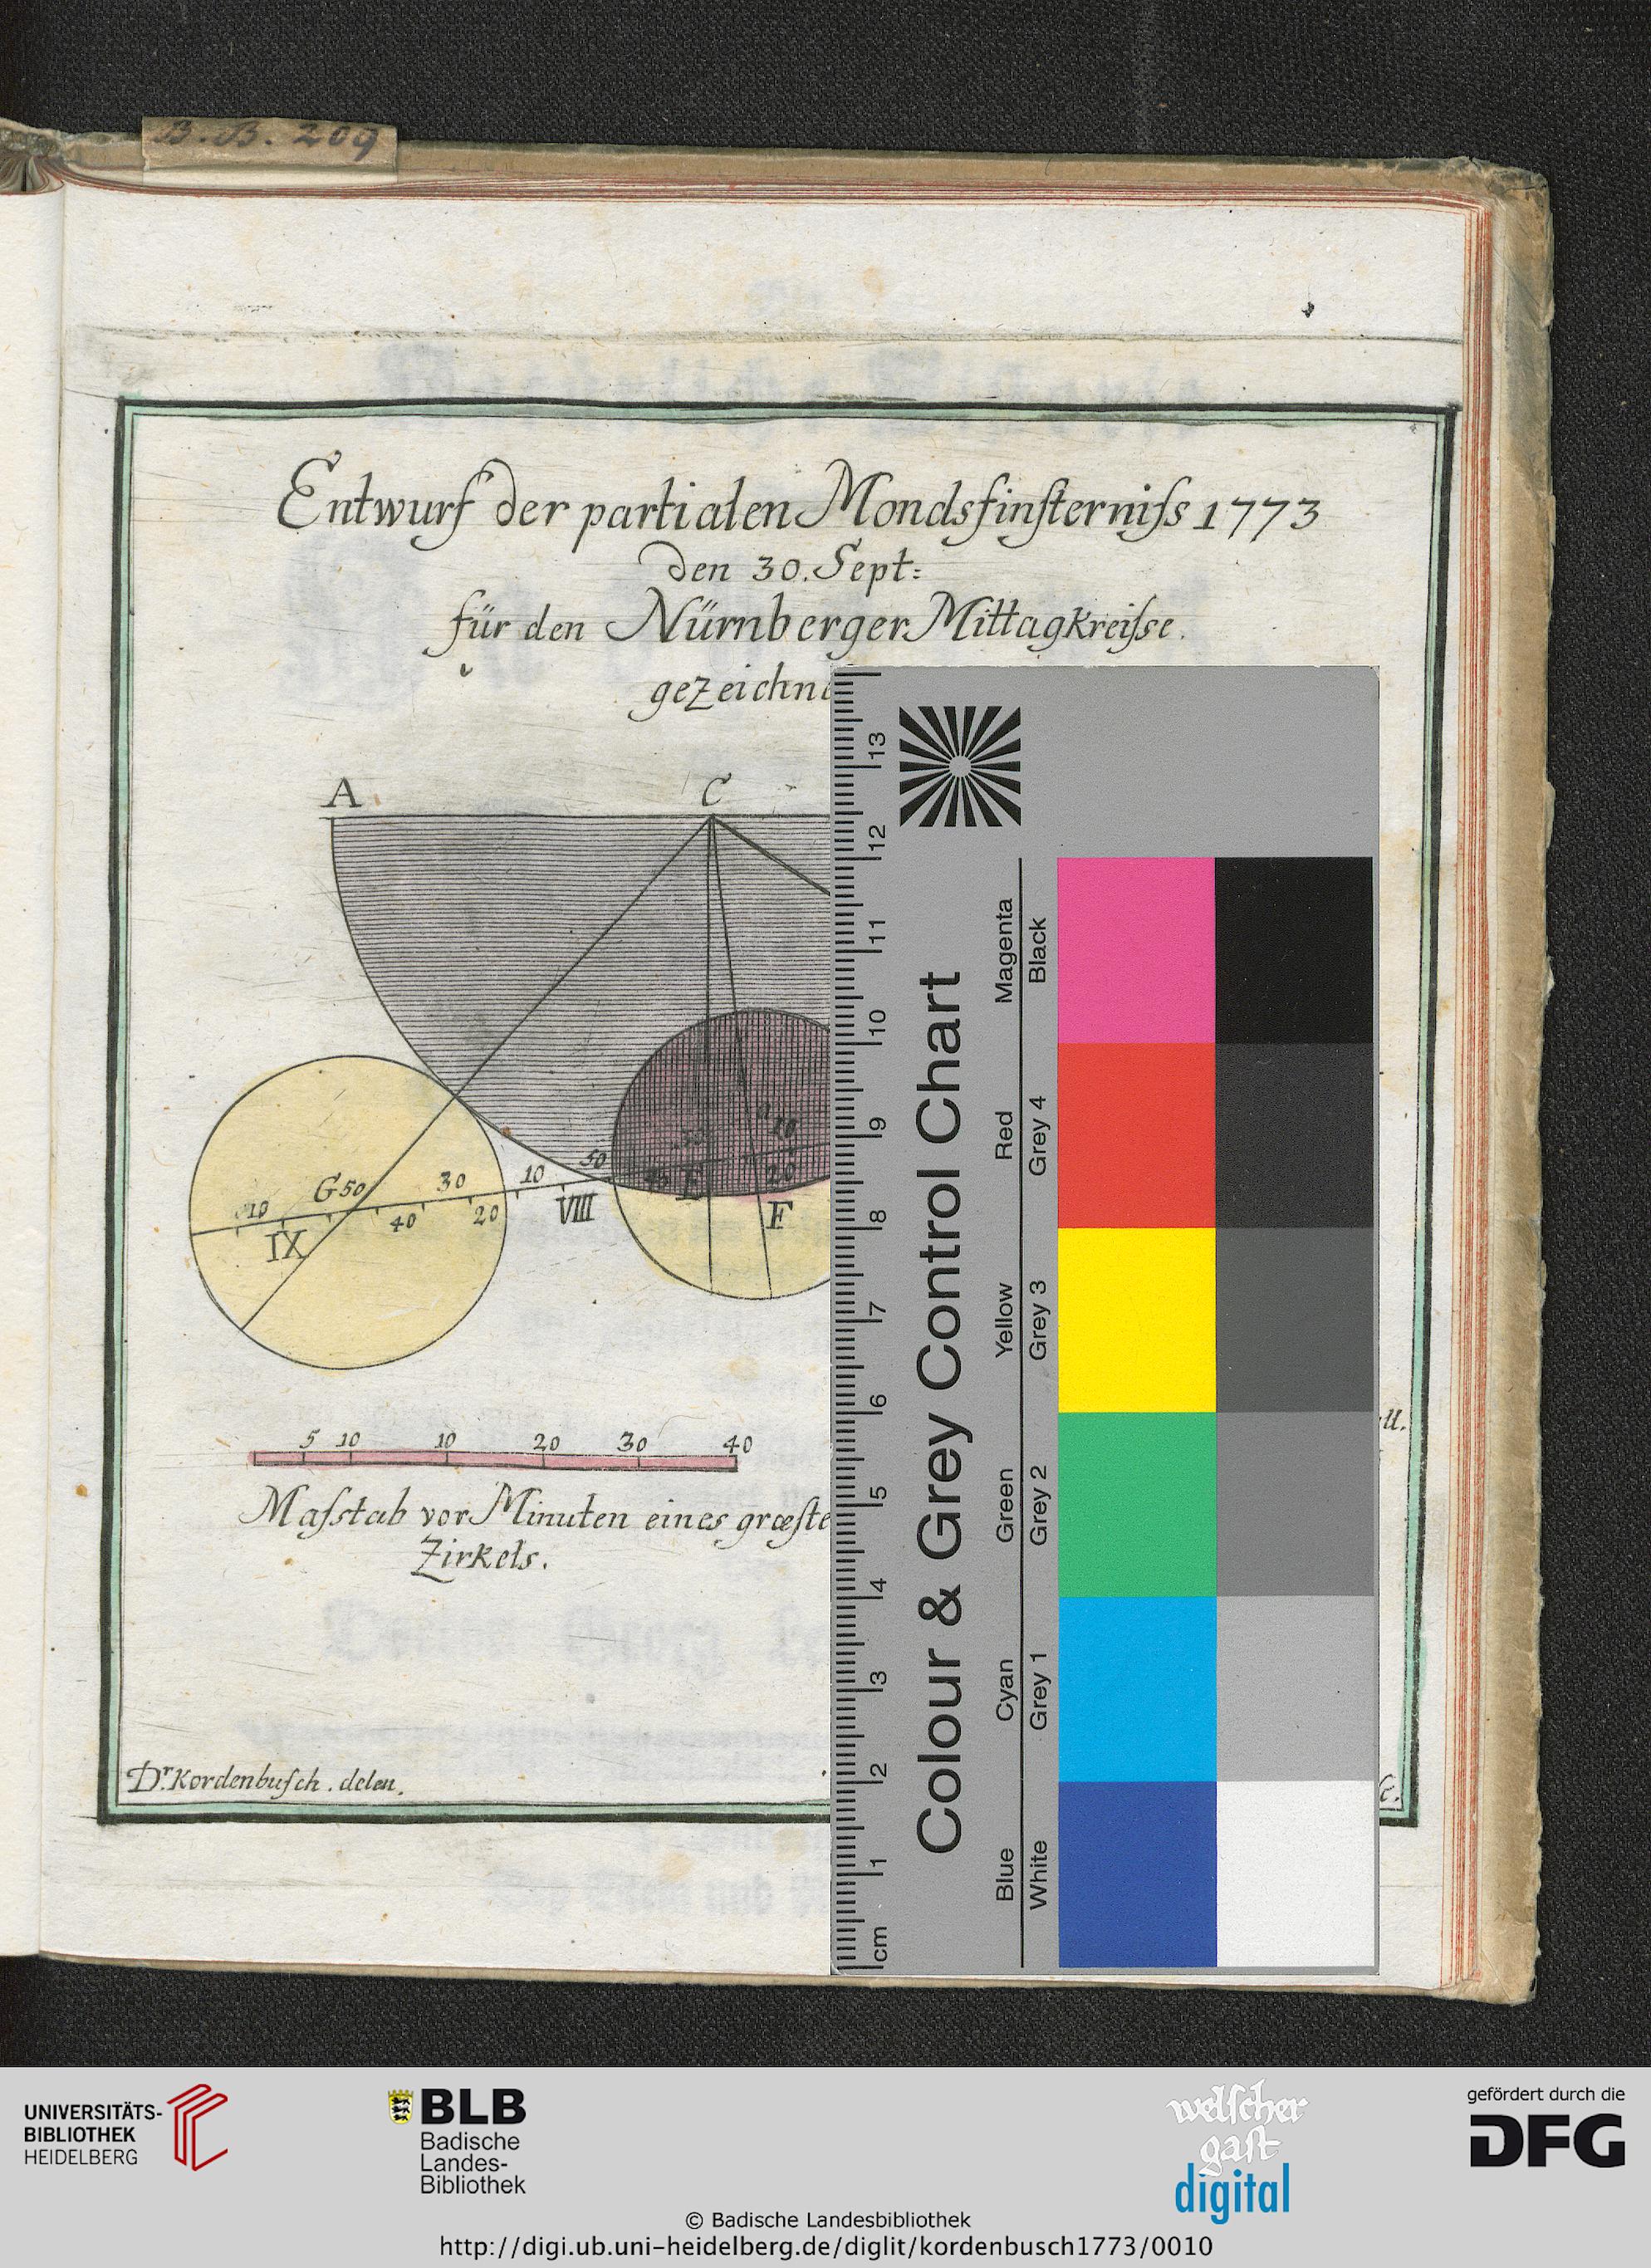 B. B. 209
Entwurf der partialen Mondsfinſterniſs 1773
den 30. Sept:
für den Nürnberger Mittagkreiſse.
gezeichn
A
C
G 50
30
10
50
10
40
20
VIII
IX
E
20
F
5 10 10 20 30 40
Maſstab vor Minuten eines græſte
Zirkels.
Dr. Kordenbuſch. delin.
Colour & Grey Control Chart
Magenta
Black
Red
Grey 4
Yellow
Grey 3
Green
Grey 2
Cyan
Grey 1
Blue
White
13
12
11
10
9
8
7
6
5
4
3
2
1
cm
UNIVERSITÄTS-
BIBLIOTHEK
HEIDELBERG
BLB
Badische
Landes-
Bibliothek
welſcher
gaſt
digital
gefördert durch die
DFG
© Badische Landesbibliothek
http://digi.ub.uni-heidelberg.de/diglit/kordenbusch1773/0010